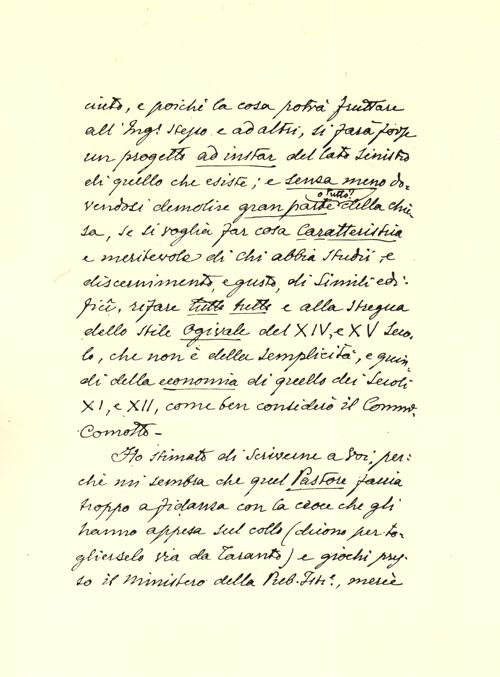 ciuto, e poiché la cosa potrà fruttare
all'Ing.e stesso e ad altri, si farà forse
un progetto ad instar del lato sinistro
di quello che esiste; e senza meno do-
o tutto?
vendosi demolire gran parte della chie
sa, se si voglia far cosa Caratteristica
e meritevole di chi abbia studii e
discernimento, e gusto, di Simili edi-
ficii, rifare tutto tutto e alla stregua
dello stile Ogivale del XIV, e XV Seco-
lo, che non è della semplicità, e quin
di della economia di quello dei Secoli
XI, e XII, come ben considerò il Comm.r
Comotto -
Ho stimato di scriverne a Voi, per-
chè mi sembra che quel Pastore faccia
troppo a fidanza con la croce che gli
hanno appesa sul collo (dicono per to-
glierselo via da Taranto) e giochi pres-
so il Ministero della Pub. Ist.e, mercè